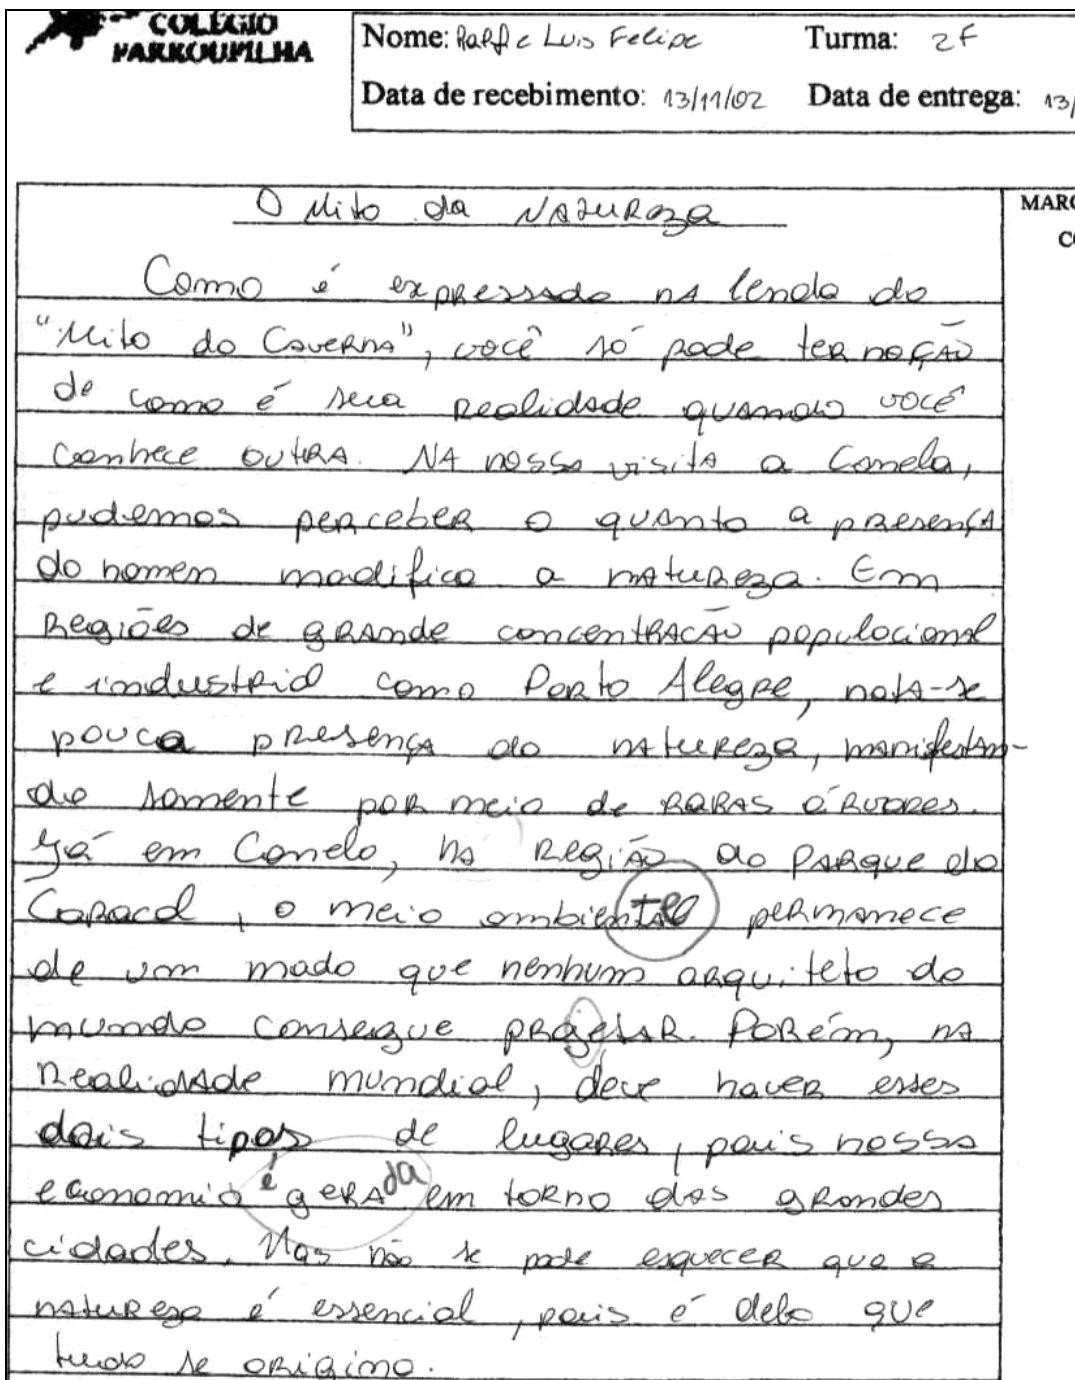 COLÉGIO
FARROUPILHA
Nome: Ralf e Luis Felipe Turma: 2F
Data de recebimento: 13/11/02 Data de entrega: 13/
MARG
CO
O Mito da Natureza
Como é expressado na lenda do
"Mito da Caverna", você só pode ter noção
de como é sua realidade quando você
conhece outra. Na nossa visita a Canela,
pudemos perceber o quanto a presença
do homem modifica a natureza. Em
regiões de grande concentração populacional
e industrial como Porto Alegre, nota-se
pouca presença da natureza, manifestan-
do somente por meio de raras árvores.
Já em Canela, na região do Parque do
Caracol, o meio ambiental permanece
de um modo que nenhum arquiteto do
mundo consegue projetar. Porém, na
realidade mundial, deve haver esses
dois tipos de lugares, pois nossa
economia é gerada em torno das grandes
cidades. Mas não se pode esquecer que a
natureza é essencial, pois é dela que
tudo se origina.